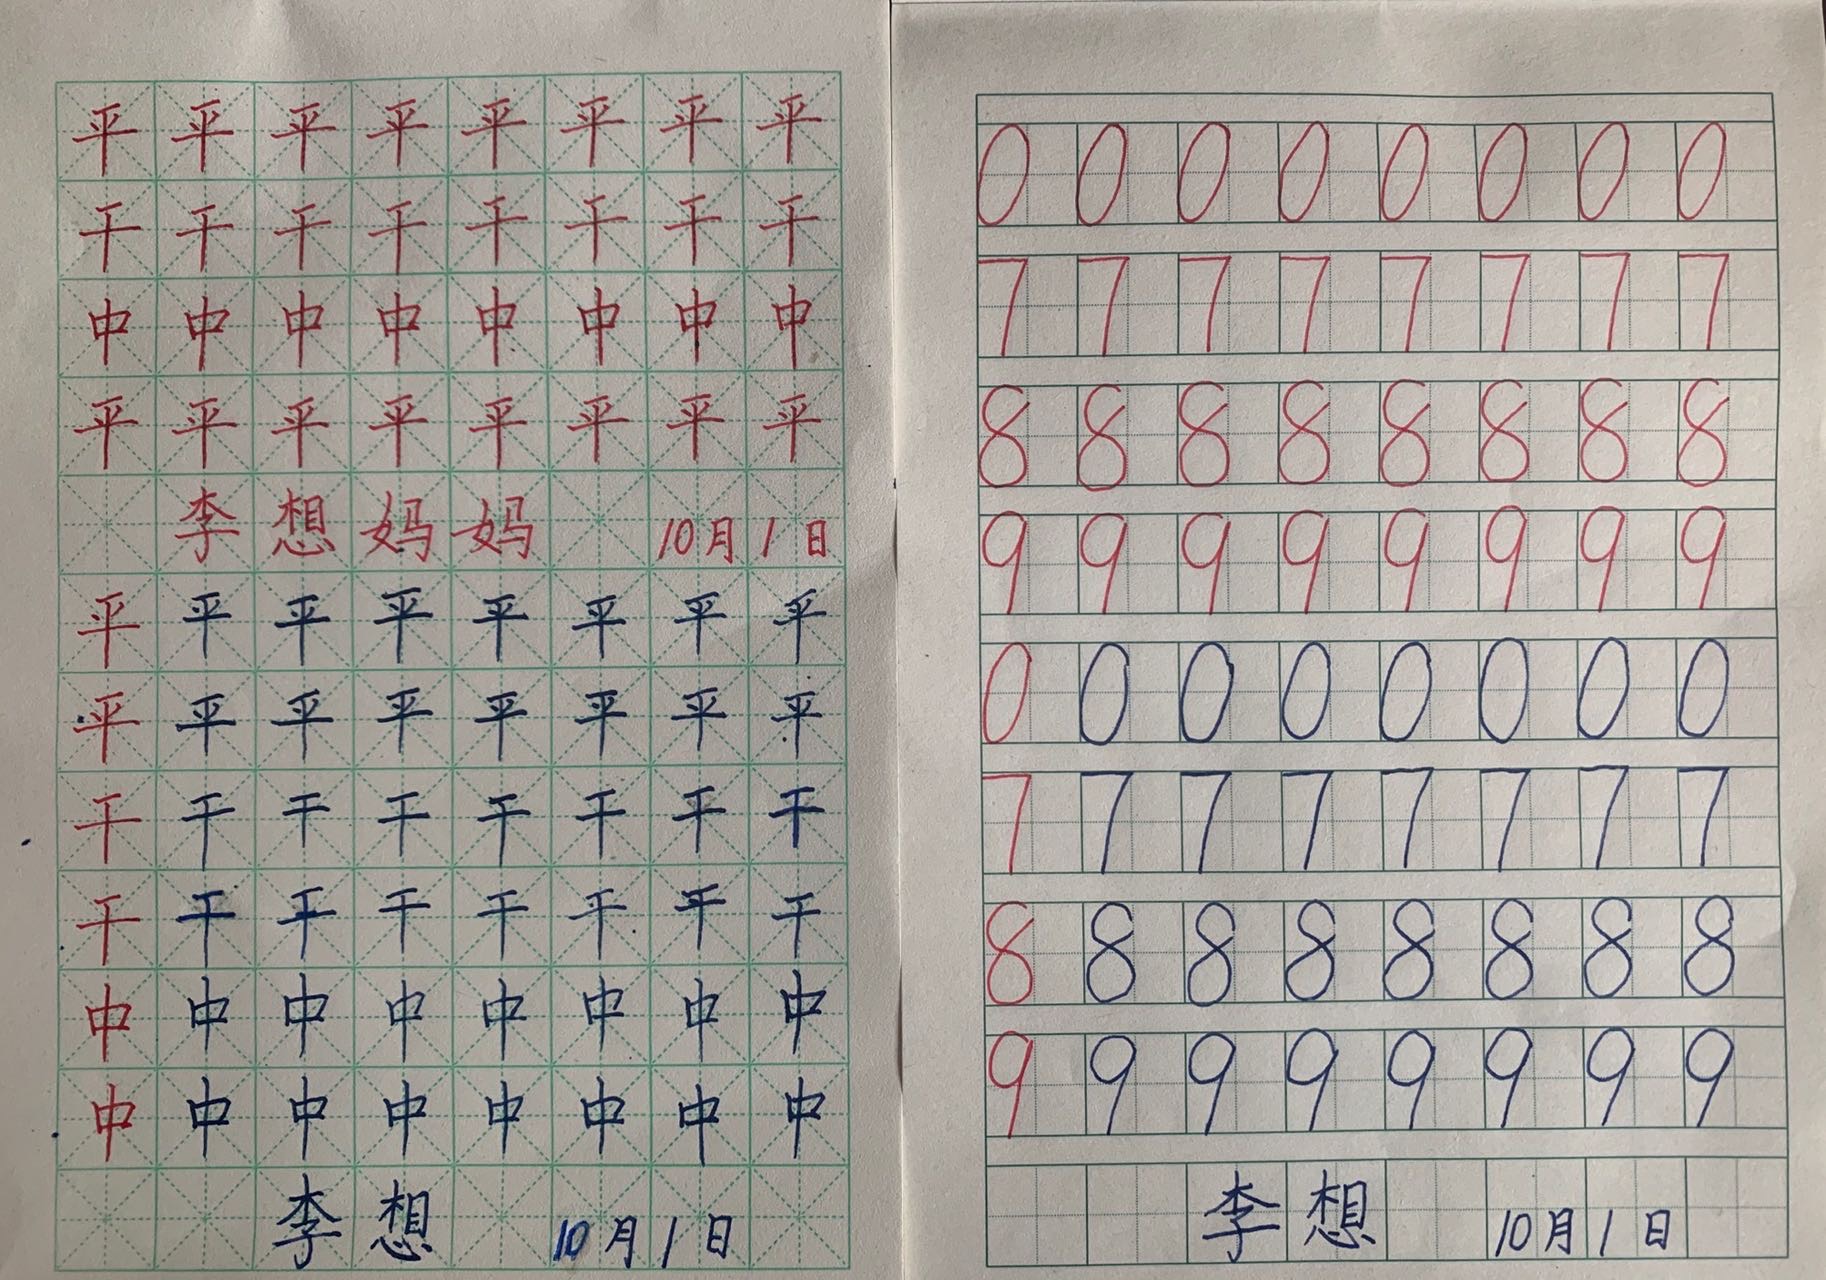 平平平平平平平平
干干干干干干干干
中中中中中中中中
平平平平平平平平
李想妈妈 10月1日
平平平平平平平平
平平平平平平平平
干干干干干干干干
干干干干干干干干
中中中中中中中中
中中中中中中中中
李想 10月1日
0 0 0 0 0 0 0 0
7 7 7 7 7 7 7 7
8 8 8 8 8 8 8 8
9 9 9 9 9 9 9 9
0 0 0 0 0 0 0 0
7 7 7 7 7 7 7 7
8 8 8 8 8 8 8 8
9 9 9 9 9 9 9 9
李想 10月1日